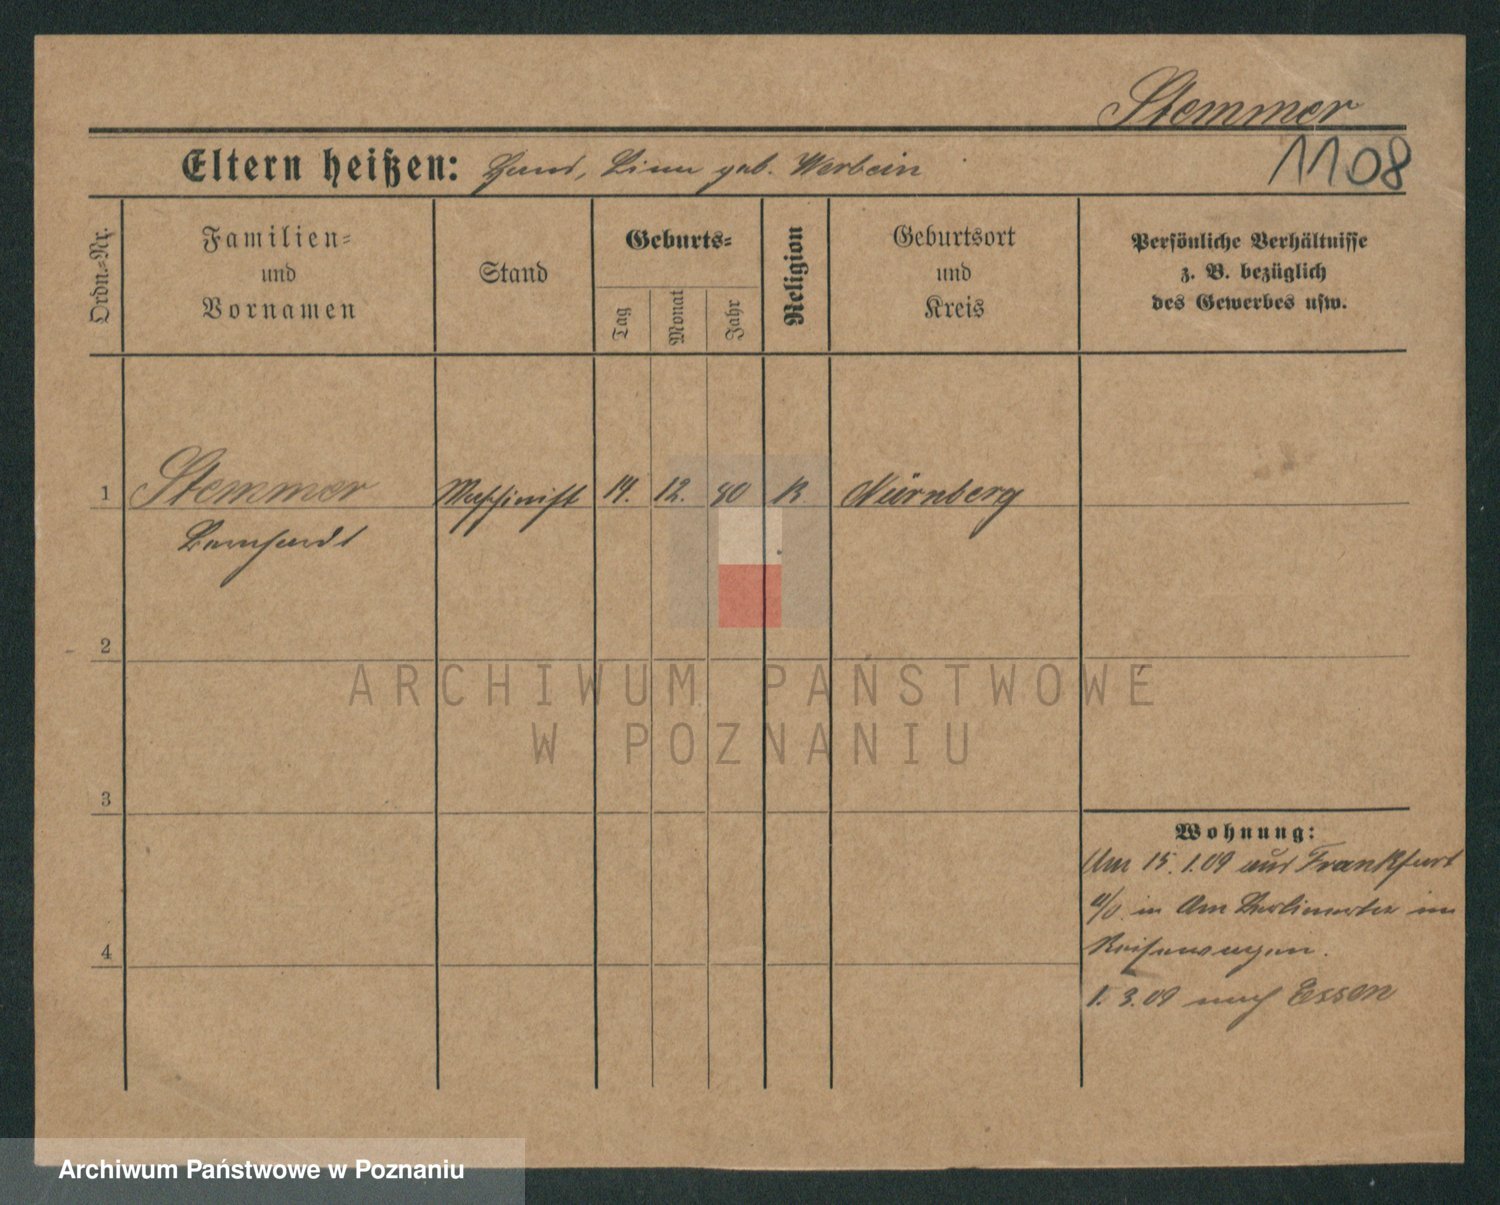 Stemmer
1108
Eltern heißen: Hans, Lina geb. Werbein
Ordn.=Nr.
Familien=
und
Vornamen
Stand
Geburts=
Tag
Monat
Jahr
Religion
Geburtsort
und
Kreis
Persönliche Verhältnisse
z. B. bezüglich
des Gewerbes usw.
1 Stemmer Maschinist 14. 12. 80 K. Nürnberg
Bernhardt
2
3
4
Wohnung:
Am 15. 1.09 aus Frankfurt
a/O. in Am Berlinertor im
Reisewagen.
1. 3. 09 nach Essen
ARCHIWUM PAŃSTWOWE
W POZNANIU
Archiwum Państwowe w Poznaniu